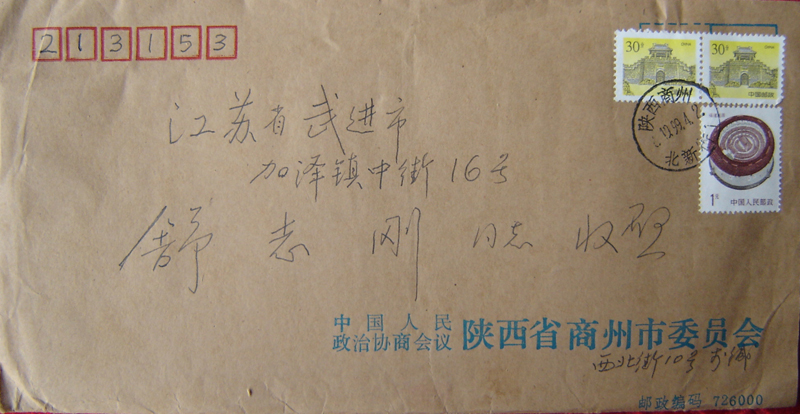 213153
30分
30分
中国邮政
陕西商州
1元
中国人民邮政
江苏省武进市
加泽镇中街16号
舒志刚 同志 收启
中国人民
政治协商会议 陕西省商州市委员会
西北街10号
邮政编码 726000